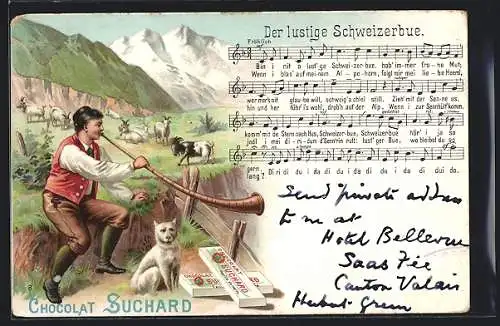 Der lustige Schweizerbue.
Fröhlich
Bin i nit a lust'ge Schweizerbue, hab' immer frohe Mut,
Wenn i blas' auf meinem Alpehorn, folgt mir mei liebe Heerd,
wer mers nit glaube will, schweig's chlei still. Zieh' mit der
hin und her führ i's wohl, drob auf der Alp. Wenn i zur Sennhütt' komm,
komm' mit de Stern nach Hus, Schweizerbue, Schweizerbue hör' i ja so
jodl i mei di-ri-dum d'Sennrin ruft: lust'ger Bue, wo bleibst du so
gern.
lang? Di ri di du i da di du i da di du i da di du i da.
Send private address
to me at
Hotel Bellevue
Saas Fée
Canton Valais
Herbert Green
CHOCOLAT SUCHARD
CHOCOLAT
SUCHARD